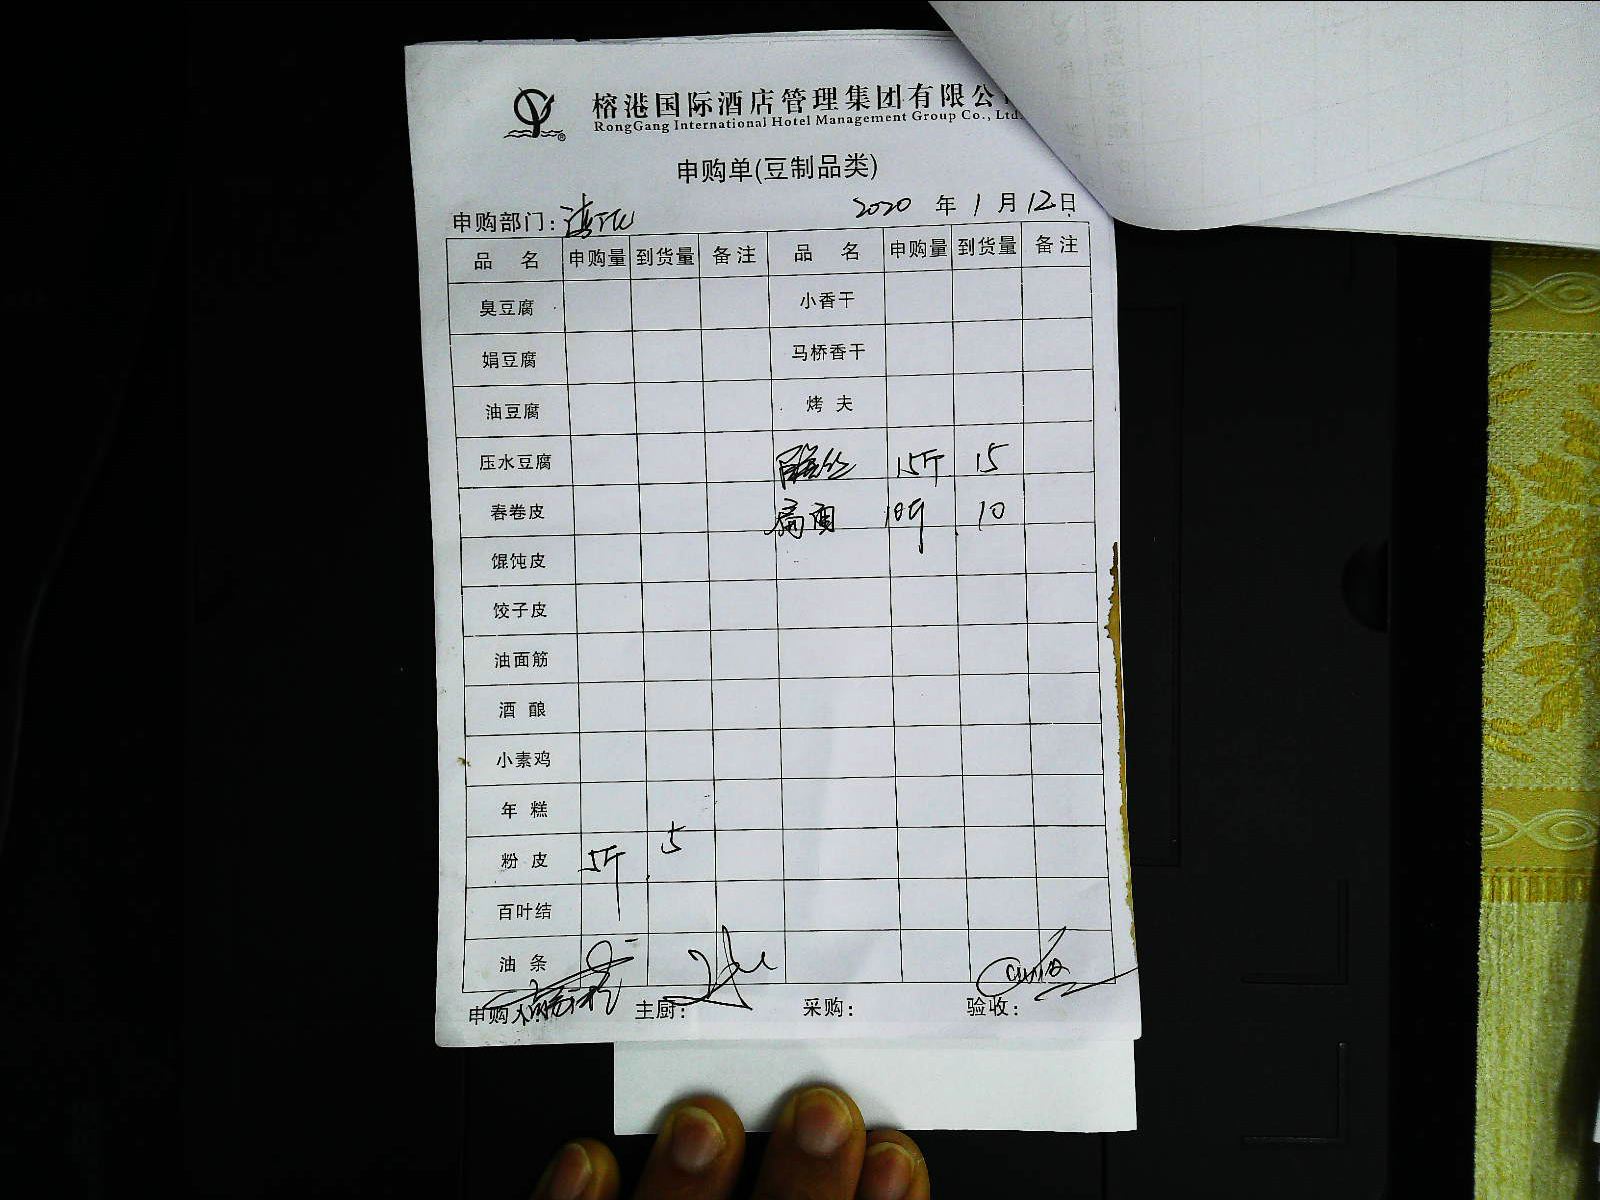 榕港国际酒店管理集团有限公
RongGang International Hotel Management Group Co., Ltd.
申购单(豆制品类)
2020 年 1 月 12 日
申购部门:
品 名 申购量 到货量 备注 品 名 申购量 到货量 备注
臭豆腐 小香干
娟豆腐 马桥香干
油豆腐 烤 夫
压水豆腐 15斤 15
春卷皮 10斤 10
馄饨皮
饺子皮
油面筋
酒 酿
小素鸡
年 糕
粉 皮 5斤 5
百叶结
油 条
申购人 主厨: 采购: 验收: